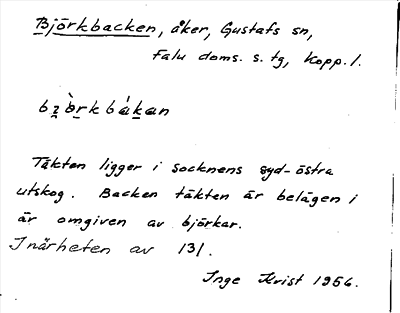 Björkbacken, åker, Gustafs sn,
Falu doms. s. tg, Kopp. l.
Täkten ligger i socknens syd-östra
utskog. Backen täkten är belägen i
är omgiven av björkar.
I närheten av 131.
Inge Kvist 1956.